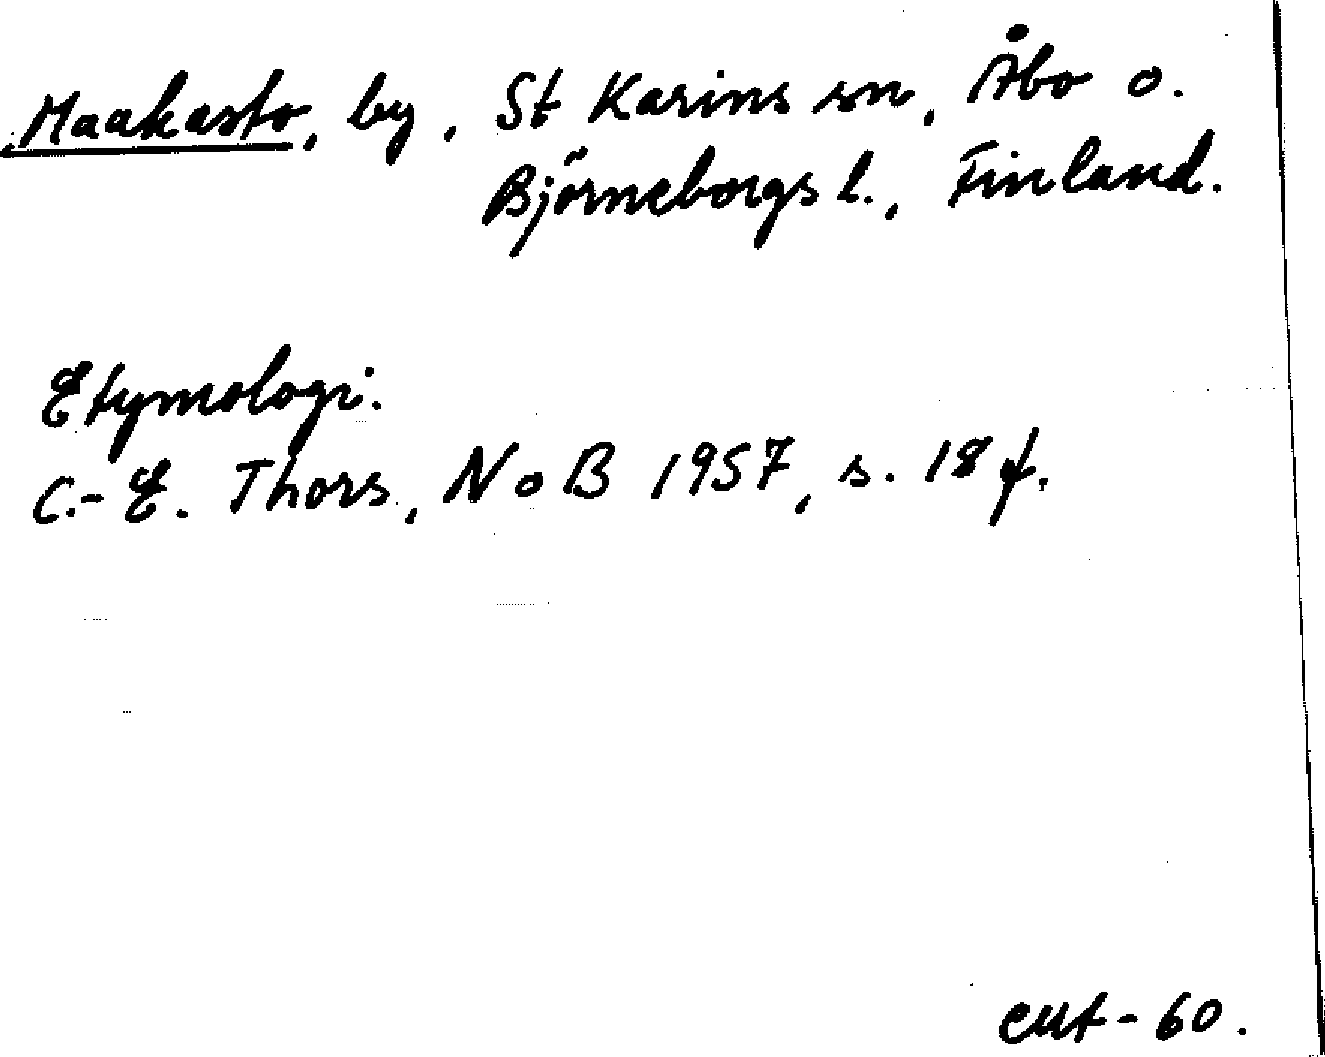 Maakasto, by, St Karins sn, Åbo o.
Björneborgs l., Finland.
Etymologi:
C.-E. Thors, NoB 1957, s. 18 f.
-60.